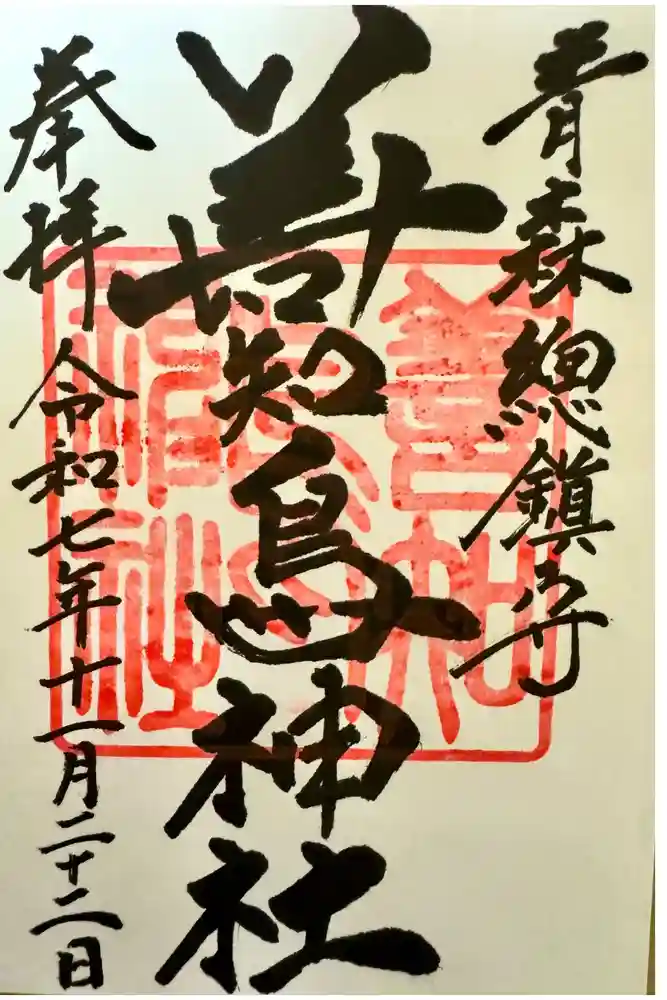 青森總鎮守
善知鳥神社
奉拝
令和七年十一月二十二日